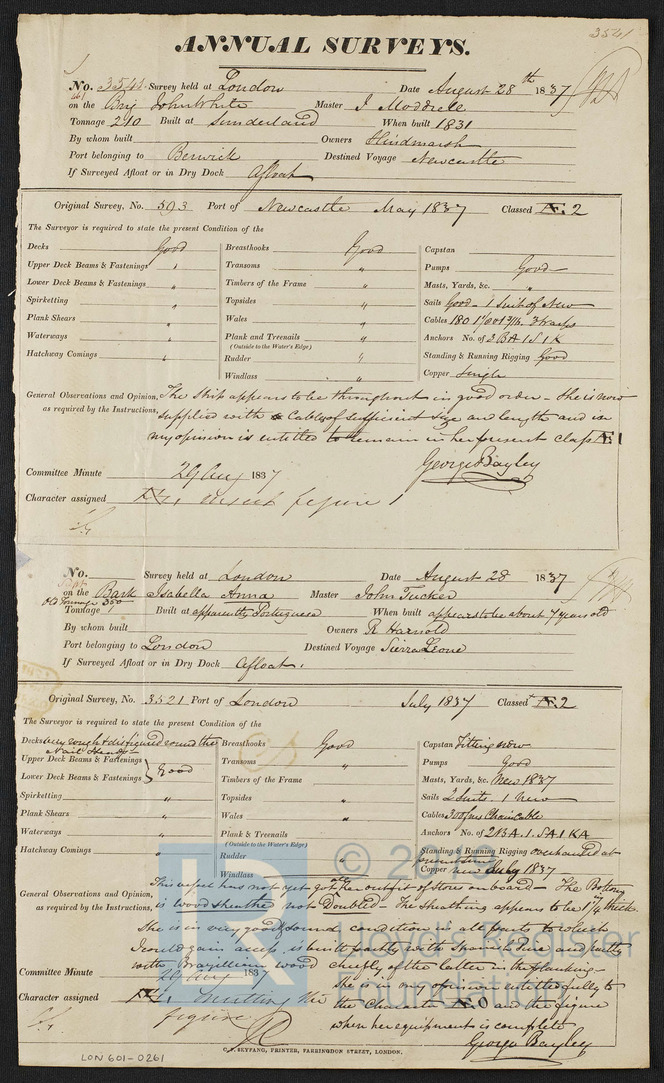 3541
ANNUAL SURVEYS.
No. 3541 Survey held at London Date August 28th 1837
on the Brig John White Master J Moddrell
Tonnage 210 Built at Sunderland When built 1831
By whom built Owners Hindmarsh
Port belonging to Berwick Destined Voyage Newcastle
If Surveyed Afloat or in Dry Dock Afloat
Original Survey, No. 593 Port of Newcastle May 1837 Classed Æ 2
The Surveyor is required to state the present Condition of the
Decks Good Breasthooks Good Capstan
Upper Deck Beams & Fastenings " Transoms " Pumps Good
Lower Deck Beams & Fastenings " Timbers of the Frame " Masts, Yards, &c. "
Spirketting " Topsides " Sails Good - 1 Suit of New
Plank Shears " Wales " Cables 180
Waterways " Plank and Treenails " Anchors No. of 3 BA 1 S 1 K
(Outside to the Water's Edge)
Hatchway Comings " Rudder " Standing & Running Rigging Good
Windlass " Copper Single
General Observations and Opinion, The Ship appears to be throughout in good order - She is now
as required by the Instructions, supplied with Cables of sufficient size and length and in
my opinion is entitled to remain in her present Class Æ 1
George Bayley
Committee Minute 29 Aug 1837
Character assigned Æ 1, insert figure 1
No. Survey held at London Date August 28 1837
on the Bark Isabella Anna Master John Tucker
Old Tonnage 350
Tonnage Built at apparently Portuguese When built appears to be about 7 years old
By whom built Owners R Harnold
Port belonging to London Destined Voyage Sierra Leone
If Surveyed Afloat or in Dry Dock Afloat.
Original Survey, No. 3521 Port of London July 1837 Classed Æ 2
The Surveyor is required to state the present Condition of the
Decks very rough & disfigured round the Breasthooks Good Capstan Fitting now
Nail Heads
Upper Deck Beams & Fastenings Good Transoms " Pumps Good
Lower Deck Beams & Fastenings Timbers of the Frame " Masts, Yards, &c. New 1837
Spirketting " Topsides " Sails 2 Suits 1 new
Plank Shears " Wales " Cables 300 fms Chain Cable
Waterways " Plank & Treenails " Anchors No. of 2 BA. 1. SA 1 KA
(Outside to the Water's Edge)
Hatchway Comings " Rudder " Standing & Running Rigging overhauled at
present time
Windlass Copper new July 1837
General Observations and Opinion, This vessel has not yet got her outfit of stores on board - The Bottom
as required by the Instructions, is wood sheathed not Doubled - The sheathing appears to be 1 1/4 thick.
She is in very good & sound condition in all parts to which
I could gain access, is built partly with Spanish Pine and partly
with Brazillian wood chiefly of the latter in the planking -
Committee Minute 29 Aug 1837 she is in my opinion entitled fully to
Character assigned Æ 1, omitting the the Character Æ O and the figure
figure. when her equipment is complete
George Bayley
C. F. SEYFANG, PRINTER, FARRINGDON STREET, LONDON.
LON 601-0261
LR
© 2019
Lloyd's Register
Foundation